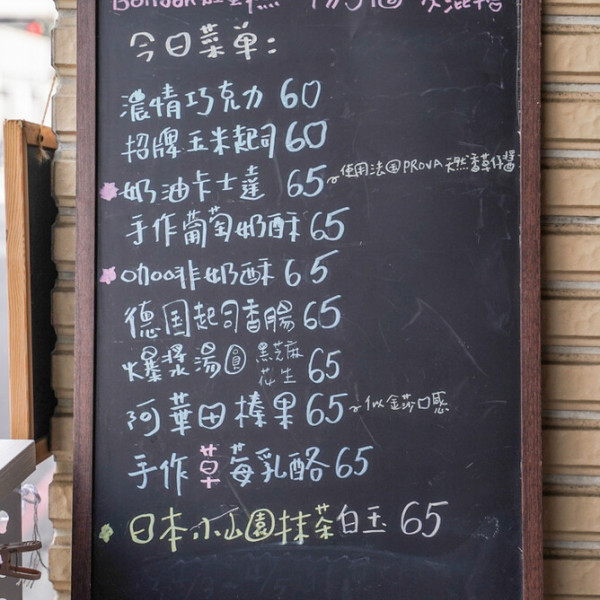 今日菜单:
濃情巧克力 60
招牌玉米起司 60
奶油卡士達 65 ~使用法国PROVA天然香草仔醬
手作葡萄奶酥 65
咖啡奶酥 65
德国起司香腸 65
爆漿湯圓 黑芝麻 花生 65
阿華田榛果 65 ~似金莎口感
手作草莓乳酪 65
日本小山園抹茶白玉 65